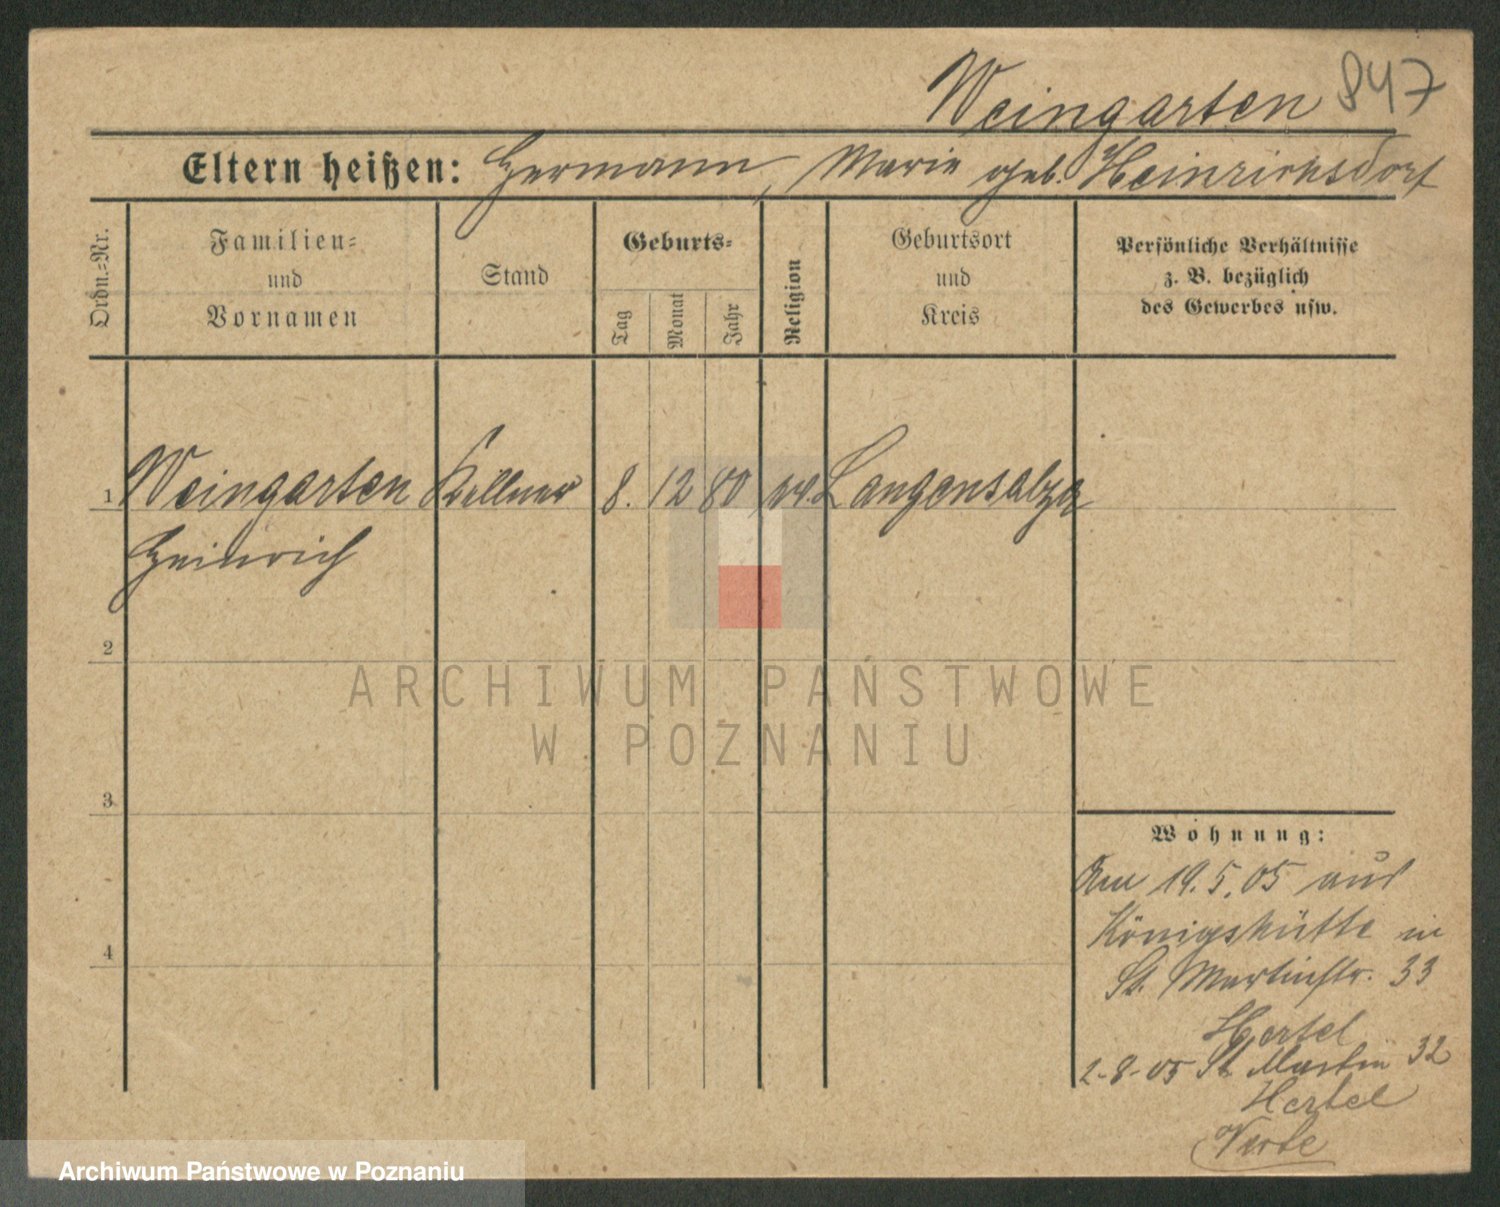 Weingarten 847
Eltern heißen: Hermann, Marie geb. Heinrichsdorf
Ordn.-Nr.
Familien-
und
Vornamen
Stand
Geburts-
Tag
Monat
Jahr
Religion
Geburtsort
und
Kreis
Persönliche Verhältnisse
z. B. bezüglich
des Gewerbes usw.
1 Weingarten Kellner 8. 12 80 ev. Langensalza
Heinrich
2
3
4
Wohnung:
Am 19.5.05 aus
Königshütte in
St. Martinstr. 33
Hertel
2-8-05 St. Martin 32
Hertel
Verte
ARCHIWUM PAŃSTWOWE
W POZNANIU
Archiwum Państwowe w Poznaniu